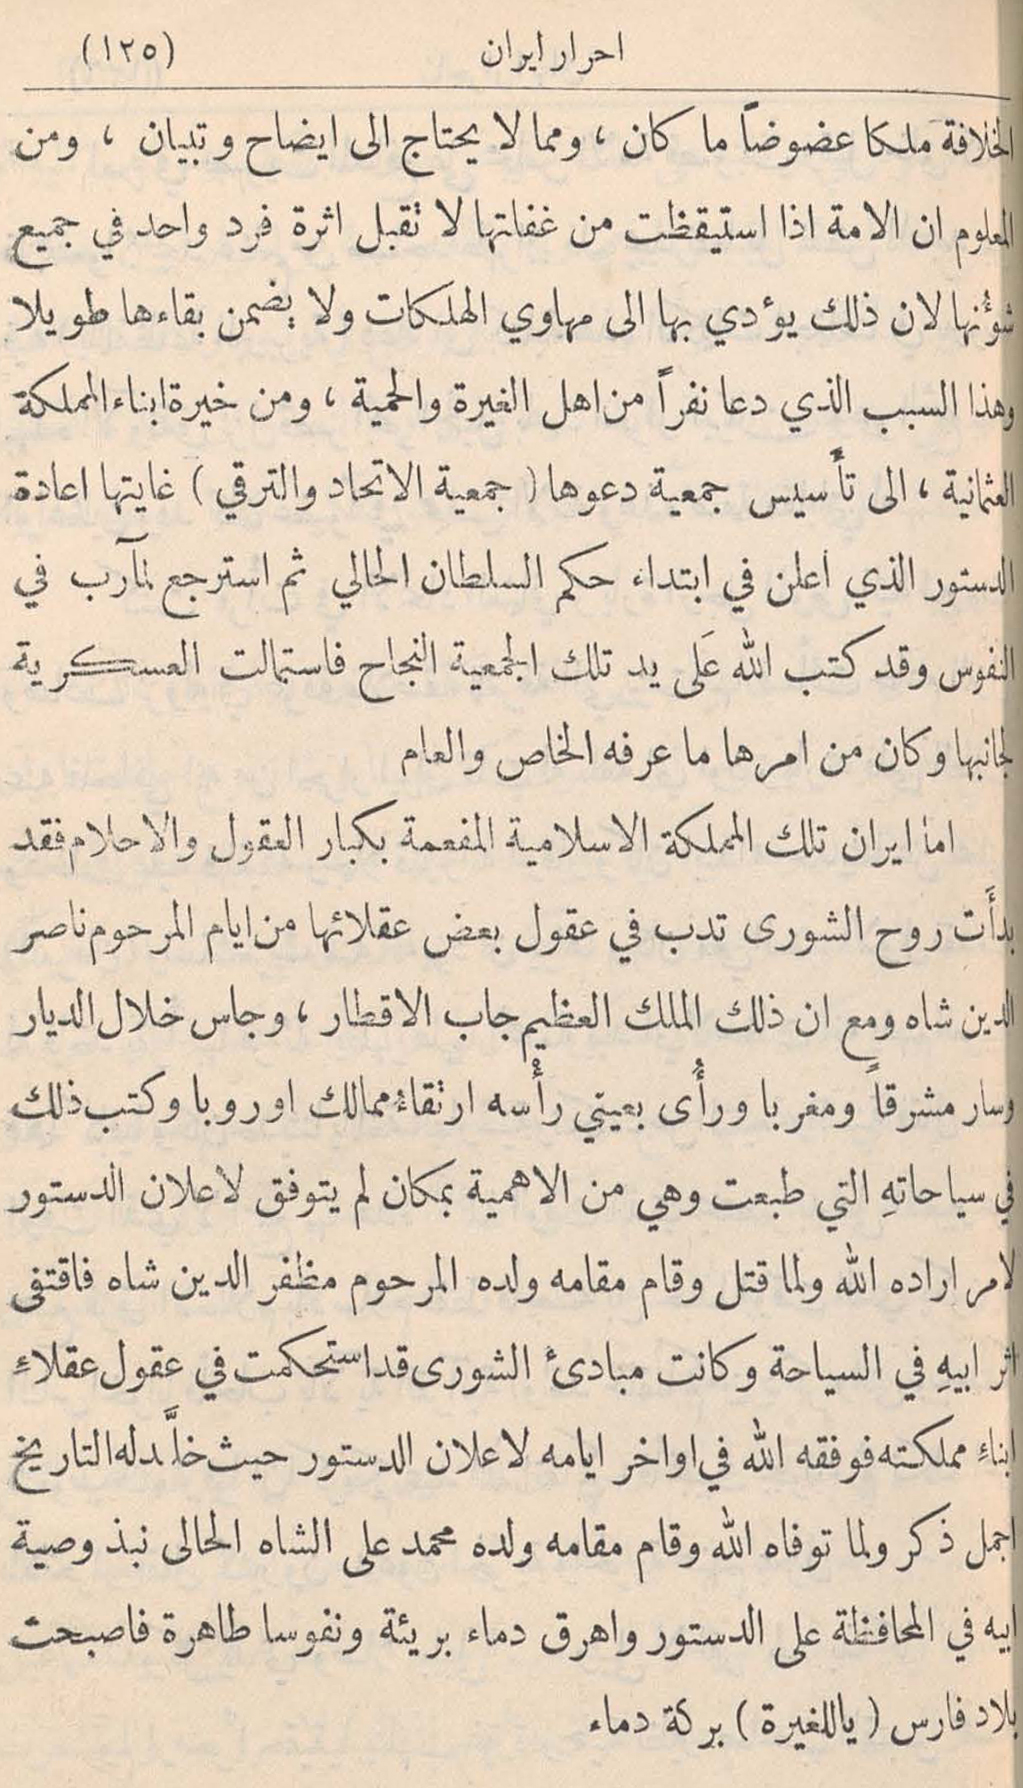 احرار ايران (١٢٥)
الخلافة ملكا عضوضاً ما كان ، ومما لا يحتاج الى ايضاح و تبيان ، ومن
المعلوم ان الامة اذا استيقظت من غفلتها لا تقبل اثرة فرد واحد في جميع
شؤنها لان ذلك يؤدي بها الى مهاوي الهلكات ولا يضمن بقاءها طويلا
وهذا السبب الذي دعا نفراً من اهل الغيرة والحمية ، ومن خيرة ابناء المملكة
العثمانية ، الى تأسيس جمعية دعوها ( جمعية الاتحاد والترقي ) غايتها اعادة
الدستور الذي اعلن في ابتداء حكم السلطان الحالي ثم استرجع لمآرب في
النفوس وقد كتب الله عَلى يد تلك الجمعية النجاح فاستمالت العسكرية
لجانبها وكان من امرها ما عرفه الخاص والعام
اما ايران تلك المملكة الاسلامية المفعمة بكبار العقول والاحلام فقد
بدأَت روح الشورى تدب في عقول بعض عقلائها من ايام المرحوم ناصر
الدين شاه ومع ان ذلك الملك العظيم جاب الاقطار ، وجاس خلال الديار
وسار مشرقاً ومغربا ورأى بعيني رأسه ارتقاءَ ممالك اوروبا وكتب ذلك
في سياحاتهِ التي طبعت وهي من الاهمية بمكان لم يتوفق لاعلان الدستور
لامر اراده الله ولما قتل وقام مقامه ولده المرحوم مظفر الدين شاه فاقتفى
اثر ابيهِ في السياحة وكانت مبادئ الشورى قد استحكمت في عقول عقلاءِ
ابناءِ مملكته فوفقه الله في اواخر ايامه لاعلان الدستور حيث خلَّد له التاريخ
اجمل ذكر ولما توفاه الله وقام مقامه ولده محمد على الشاه الحالى نبذ وصية
ابيه في المحافظة على الدستور واهرق دماء بريئة ونفوسا طاهرة فاصبحت
بلاد فارس ( ياللغيرة ) بركة دماء